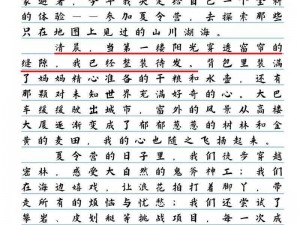 的体验——参加夏令营，去探索那些
只在地图上见过的山川湖海。
清晨，当第一缕阳光穿透窗帘的
缝隙，我已经整装待发。背包里装满
了妈妈精心准备的干粮和水壶，还有
那颗对未知世界充满好奇的心。大巴
车缓缓驶出城市，窗外的风景从高楼
大厦逐渐变成了郁郁葱葱的树林和金
黄的麦田，我的心也随之飞扬起来。
夏令营的日子里，我们徒步穿越
密林，感受大自然的鬼斧神工；我们
在海边嬉戏，让浪花拍打着脚丫，带
走所有的烦恼与忧愁；我们还尝试了
攀岩、皮划艇等挑战项目，每一次成